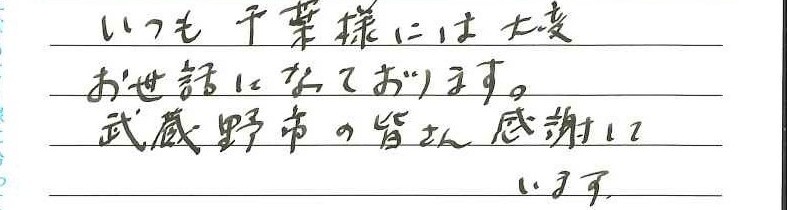 いつも千葉様には大変
お世話になっております。
武蔵野市の皆さん感謝して
います。